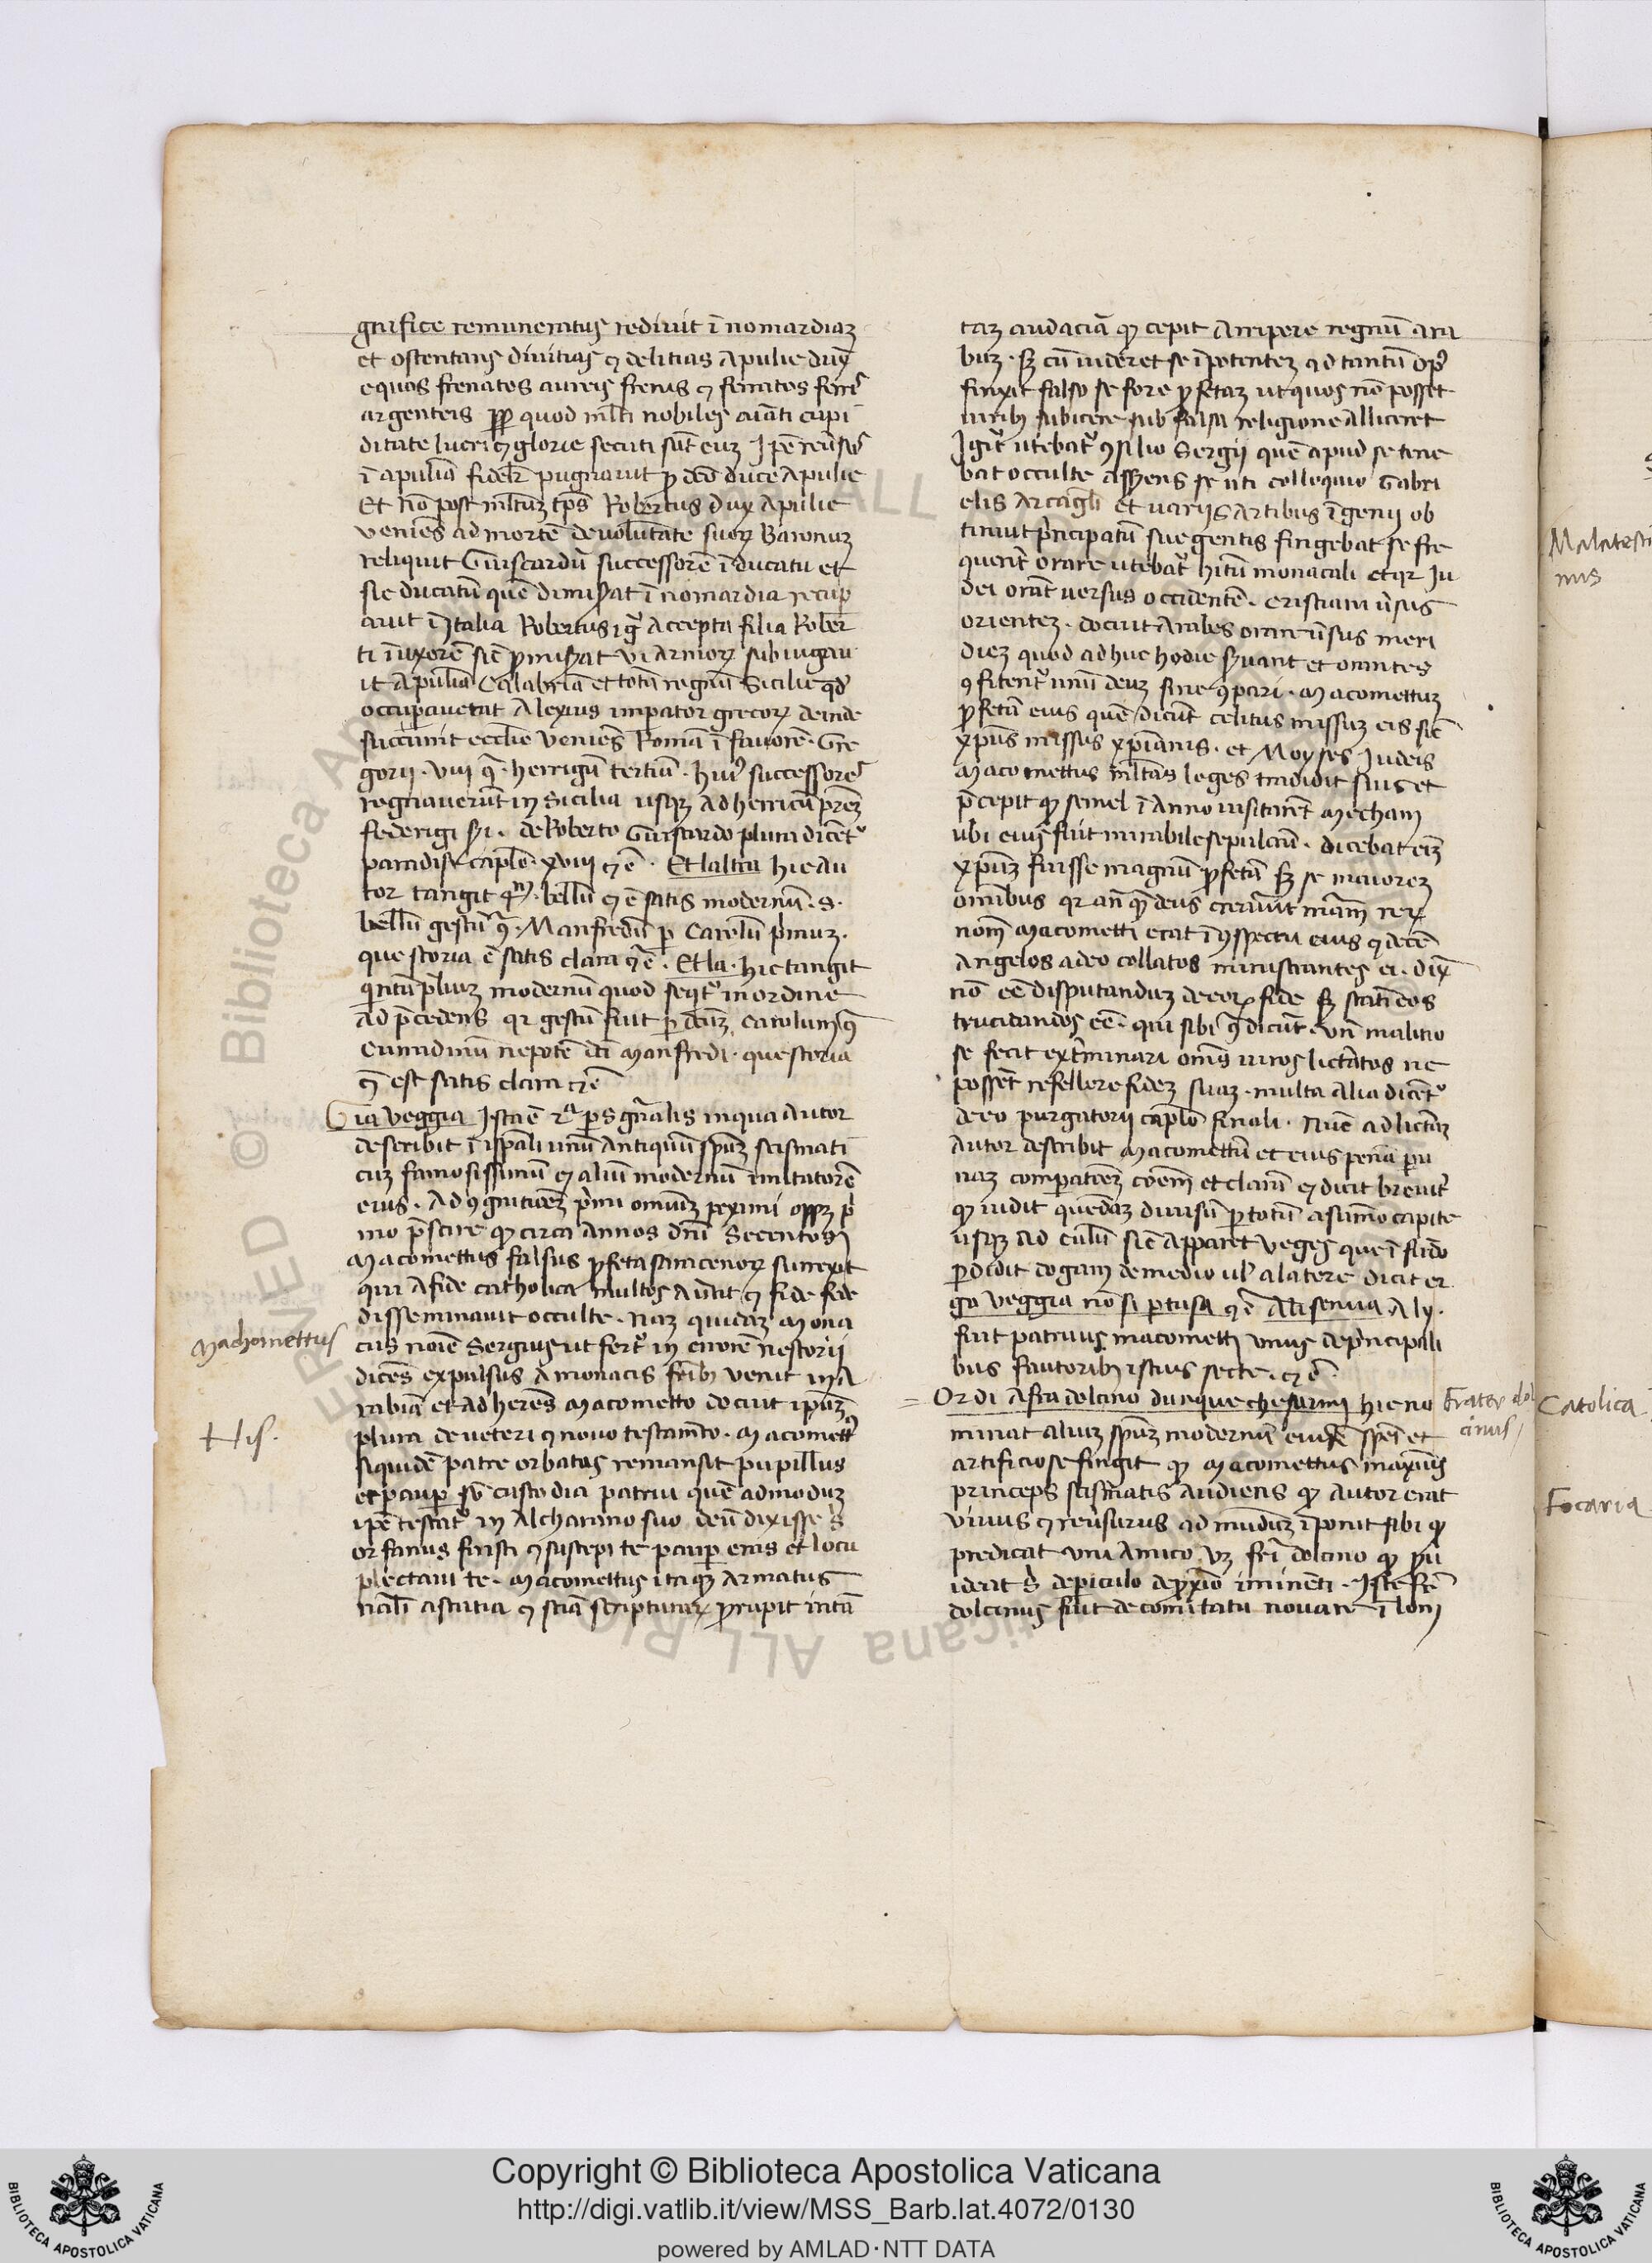 gnifice remuneratus rediuit ī nomardiaʒ
et ostentans diuitias ⁊ delitias Apulie dux̄
equos frenatos aureis frenis ⁊ ferratos ferr̄
argenteis ꝓp̄ quod ml̄ti nobiles auiāti cupi
ditate lucri ⁊ glorie secuti sūt euʒ Ip̄e reūsꝰ
ī apuliā fidel̄r pugnauit ꝓ dc̄o duce Apulie
Et nō post ml̄tuʒ tp̄s Robertus dux Apulie
veniēs ad mortē de volūtate suoꝝ Baronuʒ
reliquit Guiscardū successorē ī ducatu et
sic ducatū quē dimiserat ī nomardia recup
auit ī Italia Robertus igr̄ Accepta filia Rober
ti ī uxorē sic̄ ꝓmiserat vi Armoꝝ subiugau
it Apuliā Calabriā et totū regnū Sicilie qd̄
occupauerat Alexius imperator grecoꝝ deinde
succurrit ecclīe veniēs Romā ī fauorē Gre
gorii · vii 9ͣ · henrigū tertiū · huiꝰ successores
regnauerūt in Sicilia usqꝫ ad henricū prēʒ
federigi s̄i · de Roberto Guiscardo plura dicētꝰ
paradisi cap̄lo · xviii ⁊ c̄ · Et laltra hic au
tor tangit qr̄tū · bellū ⁊ ē satis modernū · s ·
bellū gestū 9ͣ · Manfredū ꝑ Carolū p̄muʒ ·
que storia ē satis clara ⁊ c̄ · Et la · hic tangit
qintū p̄liuʒ modernū quod seqitꝰ in ordine
ad p̄cedens qr gestū fuit ꝑ dc̄uʒ Carolum 9ͣ
Curradinū nepotē dc̄i Manfredi · que storia
⁊ est satis clara ⁊ c̄
Gia veggia Ista ē 2ᵃ ps gn̄alis in qua Autor
describit ī ispāli unū Antiquū spūʒ scismati
cuʒ famosissimū ⁊ aliū modernū imitatorē
eius · Ad 9gnitiōeʒ p̄mi omniū pexumi opꝫ p̄
mo p̄scire ꝙ circa Annos dn̄i Secentos
Macomettus falsus ꝓfeta saracenoꝝ surrexit
qui a fide catholica multos au̅tit ⁊ fide fede
disseminauit occulte · Naʒ quidaʒ Mona
cus noīe Sergius ut fert̄ in errorē nestorii
dicēs expulsus a monacis frībꝫ venit in A
rabiā et ad herēs Macometto docuit ipūʒ
plura de veteri ⁊ nouo testamēto · Macomettꝰ
siquidē patre orbatus remansit pupillus
et pauꝑ sb̄ custodia patrui quē admoduʒ
ip̄e testatꝰ in Alcharano suo deū dixisse s̄
orfanus fuisti ⁊ suscepi te pauꝑ eras et locu
plectaui te · Macomettus itaqꝫ Armatus
nāli astutia ⁊ sciā scripturaꝝ ꝓrupit in tā
Machomettus
His.
taʒ audaciā ꝙ cepit Arripere regnū ara
buʒ · sʒ cū uideret se īpotenteʒ ad tantū opꝰ
finxit falso se fore ꝓfetaʒ ut quos nō posset
uiribꝫ subicere sub falsa religione alliceret
Igit̄ utebatꝰ 9silio Sergii quē apud se tene
bat occulte asserens se uti colloquio Gabri
elis Arcāgeli et uariis Artibus īgenii ob
tinuit prīncipatū sue gentis fingebat se fre
quent̄ orare utebatꝰ hītū monacali et qr Iu
dei orāt uersus occidentē · cristiani u̅sus
orienteʒ · docuit Arabes orare u̅sus meri
dieʒ quod ad huc hodie seruant et omnes
9fitentꝰ unū deuʒ sine 9pari · Macomettuʒ
ꝓfetā eius quē dicūt celitus missuʒ eis sic̄
xp̄us missus xp̄ianis · et Moyses Iudeis
Macomettus ml̄tas leges tradidit suis et
p̄cepit ꝙ semel ī Anno uisitarēt Mecham
ubi eius fuit mirabile sepulcrū · dicebat eīʒ
xp̄uʒ fuisse magnū ꝓfetā sʒ se maioreʒ
omībus qr an̄ quā deus creauit mūdū
nom̄ Macometti erat ī 9spectu eius ⁊ decē
Angelos a deo collatos ministrantes ei · dix̄
nō eē disputanduʒ de eoꝝ fide sʒ statī eos
trucidandos eē · qui sibi 9ͣdicūt · vn̄ malitio
se fecit ext̄minari om̄s uiros lict̄atos ne
possēt refellere fideʒ suaʒ · multa alia dicētꝰ
de eo purgatorii cap̄lo finali · Nūc ad lictāʒ
Autor describit Macomettū et eius penā ꝑ u
naʒ comparatiōeʒ cōem̄ et clarā ⁊ dicit breuit̄
ꝙ uidit quēdaʒ diuisū ꝑ totū a sūmo capite
usqꝫ ad culū sic̄ apparet veges que ī fūdo
ꝑdidit dogam de medio ul̄ a latere dicit er
go veggia nō si pertusa ⁊ c̄ Ali sen ua Aly ·
fuit patruus macometti unus de prīncipali
bus fautoribꝫ istius secte · ⁊ c̄ ·
Or di A fra dolcino dunque che sarmi hic no
minat aliuʒ spūʒ modernū eiusdē spēi et
artificiose fingit ꝙ Macomettus maximus
princeps scismatis Audiens ꝙ Autor erat
viuus ⁊ reu̅surus ad mūduʒ īponit sibi ꝙ
predicat uni Amico vʒ fr̄i dolcino ꝙ pui
ideat s̄ de periculo de ꝓximo iminēti · Iste fr̄
dolcinus fuit de comitatu nouare ī lom
Frater dol
cinus
Malatesti
nus
Catolica
Focaria
Copyright © Biblioteca Apostolica Vaticana
http://digi.vatlib.it/view/MSS_Barb.lat.4072/0130
powered by AMLAD·NTT DATA
BIBLIOTECA APOSTOLICA VATICANA
BIBLIOTECA APOSTOLICA VATICANA